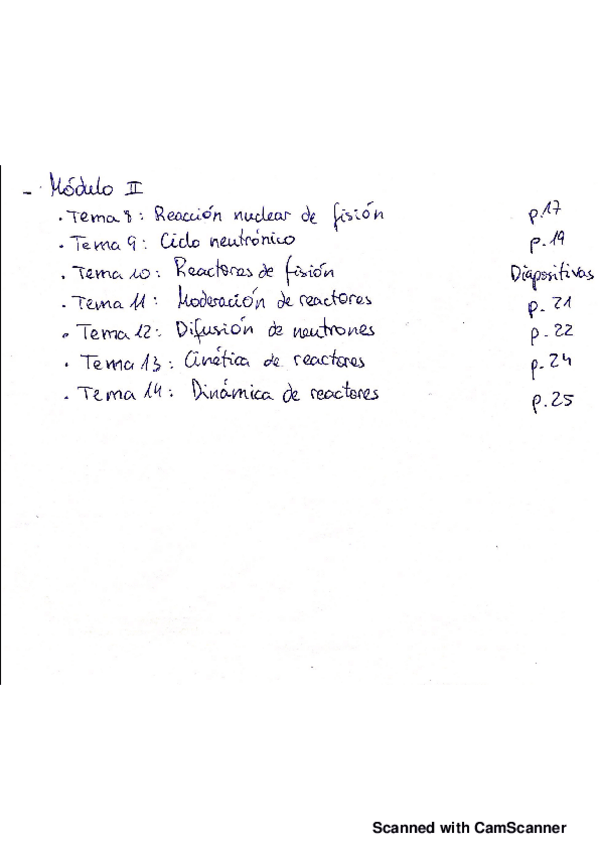 - Módulo II
· Tema 8: Reacción nuclear de fisión p.17
· Tema 9: Ciclo neutrónico p.19
· Tema 10: Reactores de fisión Diapositivas
· Tema 11: Moderación de reactores p.21
· Tema 12: Difusión de neutrones p.22
· Tema 13: Cinética de reactores p.24
· Tema 14: Dinámica de reactores p.25
Scanned with CamScanner